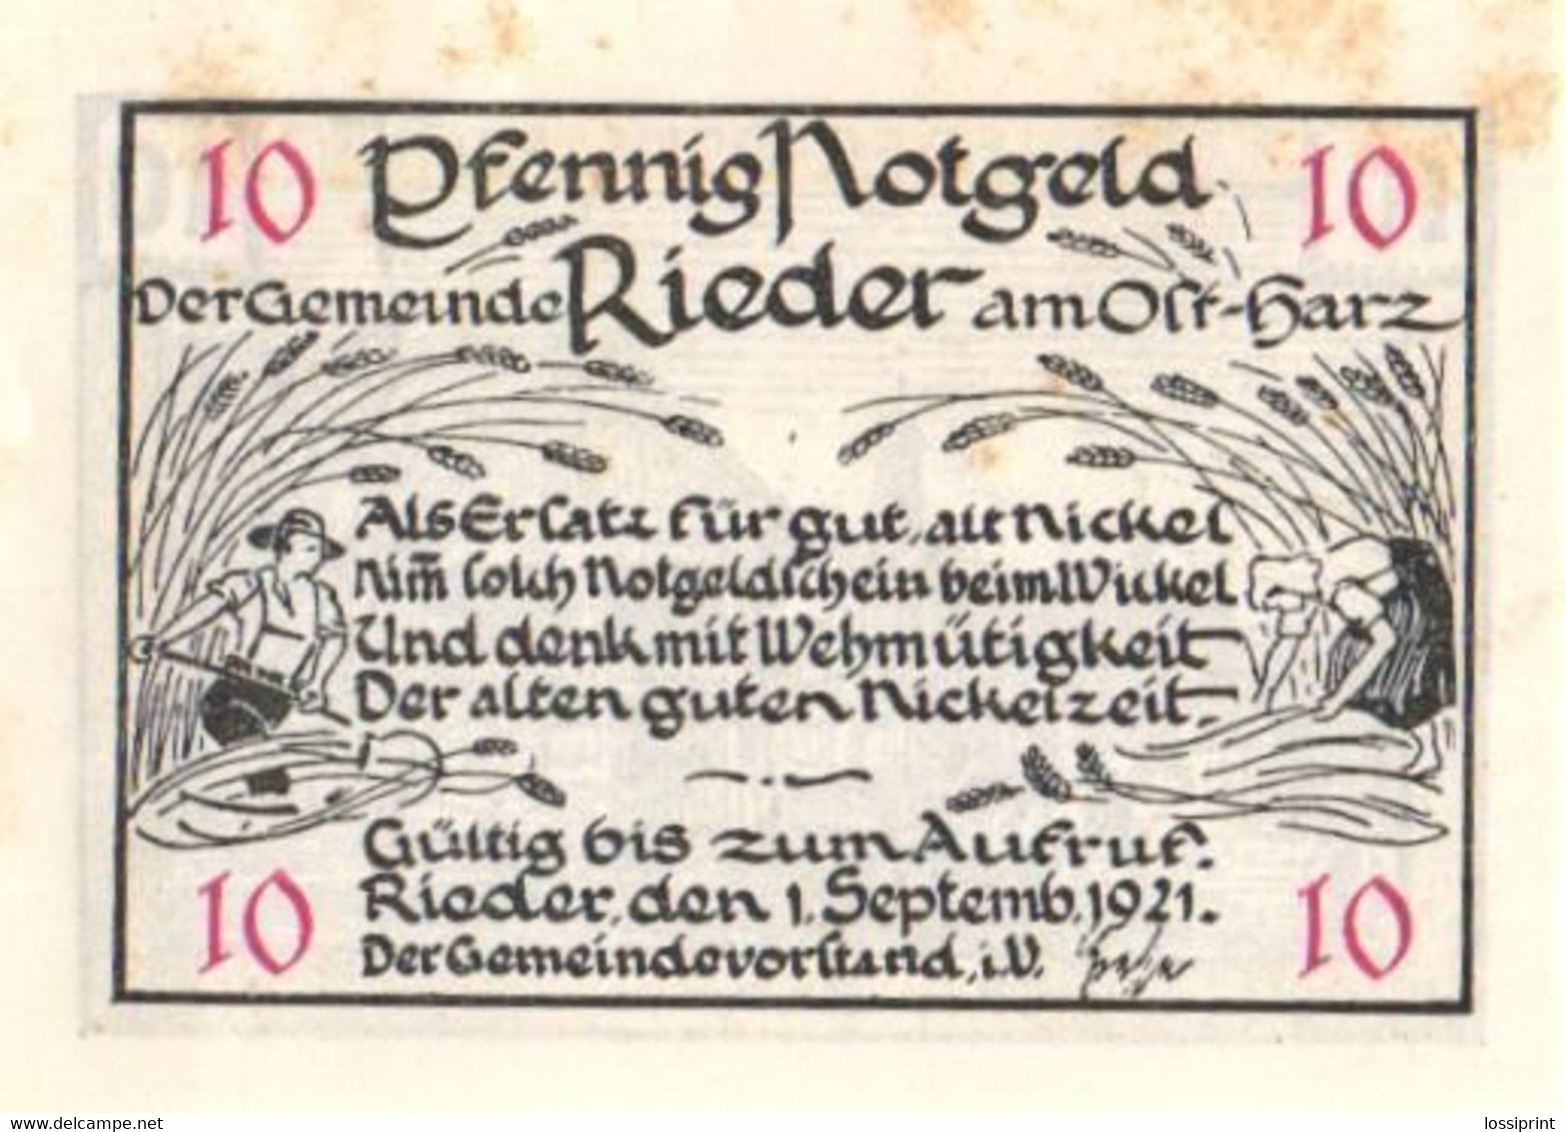 10 Pfennig Notgeld 10
Der Gemeinde Rieder am Oſt-Harz
Als Erſatz für gut, alt Nickel
Nim̅ ſolch Notgeldſchein beim Wickel
Und denk mit Wehmütigkeit
Der alten guten Nickelzeit.
Gültig bis zum Aufruf.
10 Rieder, den 1. Septemb. 1921. 10
Der Gemeindevorſtand, i.V.
lossiprint